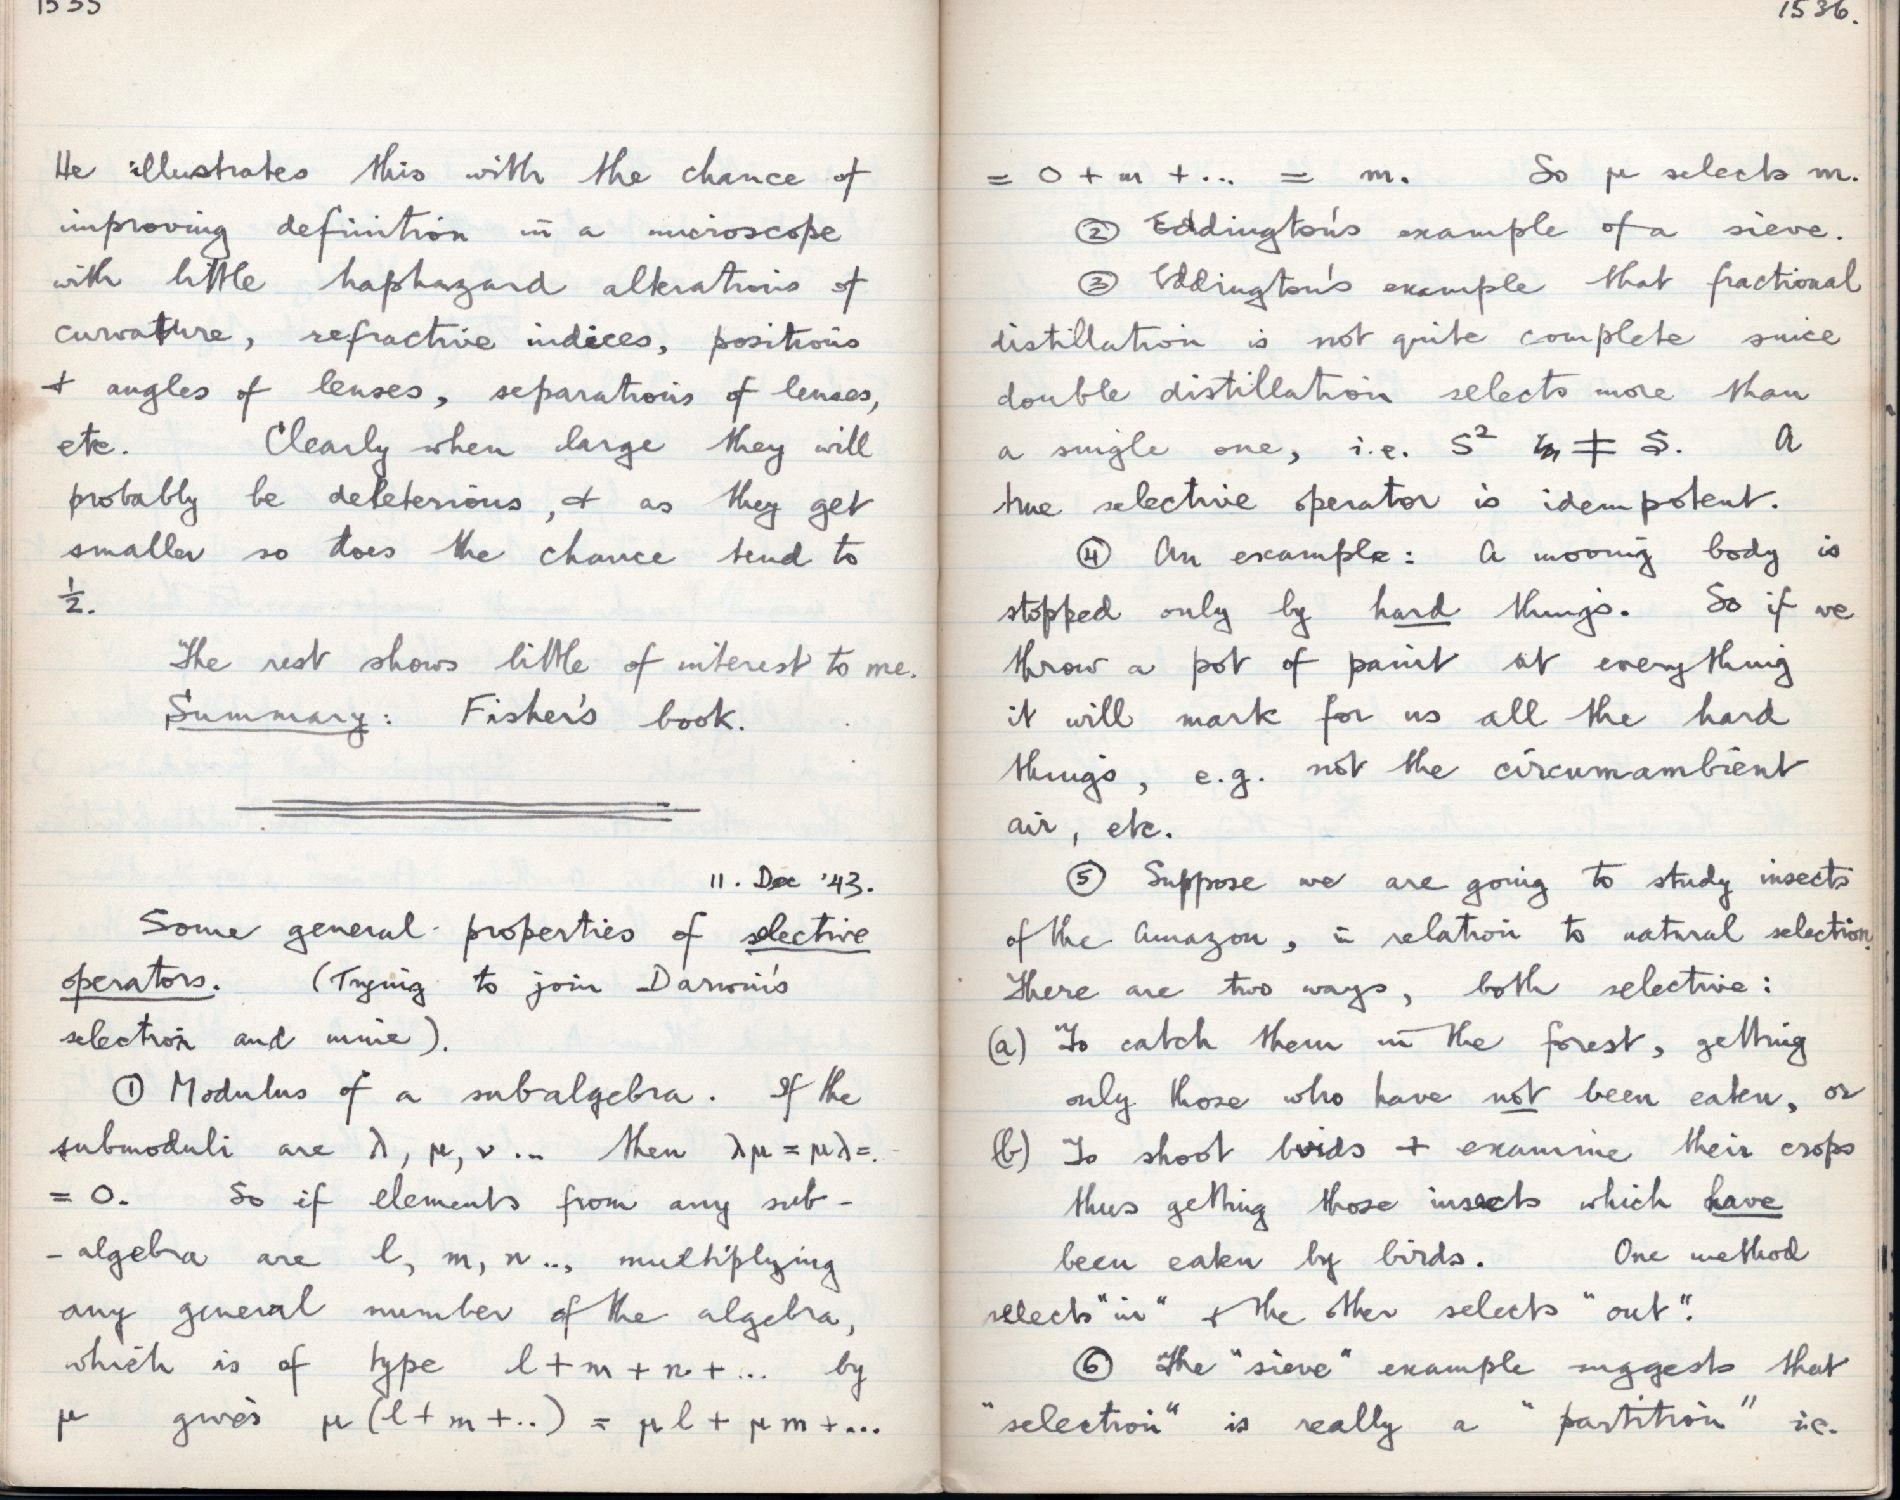 1535
He illustrates this with the chance of
improving definition in a microscope
with little haphazard alterations of
curvature, refractive indices, positions
& angles of lenses, separations of lenses,
etc. Clearly when large they will
probably be deleterious, & as they get
smaller so does the chance tend to
½.
The rest shows little of interest to me.
Summary: Fisher's book.
11. Dec '43.
Some general properties of selective
operators. (Trying to join Darwin's
selection and mine).
① Modulus of a subalgebra. If the
submoduli are λ, μ, ν ... then λμ = μλ =.
= 0. So if elements from any sub-
-algebra are l, m, n .., multiplying
any general number of the algebra,
which is of type l + m + n + ... by
μ gives μ (l + m + ..) = μl + μm + ...
1536.
= 0 + m + ... = m. So μ selects m.
② Eddington's example of a sieve.
③ Eddington's example that fractional
distillation is not quite complete since
double distillation selects more than
a single one, i.e. S² ≠ S. A
true selective operator is idempotent.
④ An example: A moving body is
stopped only by hard things. So if we
throw a pot of paint at everything
it will mark for us all the hard
things, e.g. not the circumambient
air, etc.
⑤ Suppose we are going to study insects
of the Amazon, in relation to natural selection.
There are two ways, both selective:
(a) To catch them in the forest, getting
only those who have not been eaten, or
(b) To shoot birds + examine their crops
thus getting those insects which have
been eaten by birds. One method
selects "in" & the other selects "out".
⑥ The "sieve" example suggests that
"selection" is really a "partition" ie.